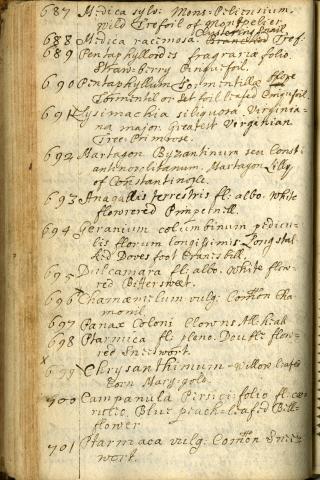 687 Medica sylv: Mons: Peliensium.
Wild Trefoil of Montpelier
Clustering Snail
688 Medica racemosa. Tref.
689 Pentaphylloides fragraria folio.
Straw-berry Cinquefoil.
690 Pentaphyllum Tormentillæ
Tormentil or Set foil leafed Cinquefoil
691 Lysimachia siliquosa Virginia-
na major. Greatest Virginian
Tree Primrose.
692 Martagon Byzantinum seu Const-
antinopolitanum. Martagon Lilly
of Constantinople.
693 Anagallis terrestris fl: albo. White
flowered Pimpernill.
694 Geranium columbinum pedicu-
lis florum longissimis. Long stal-
ked Doves foot Cranesbill.
695 Dulcamara fl: albo. White flow-
red Bittersweet.
696 Chamæmelum vulg: Comon Cha-
momil.
697 Panax Coloni Clowns All-heal
698 Ptarmica fl: pleno. Double flow-
red Sneeswort.
x
699 Chrysanthimum Willow leafed
Corn Mary-gold.
700 Campanula Persici-folio fl: cæ-
rulio. Blue peach-leafed Bell-
flower
701 Ptarmaca vulg: Comon Snees-
wort.